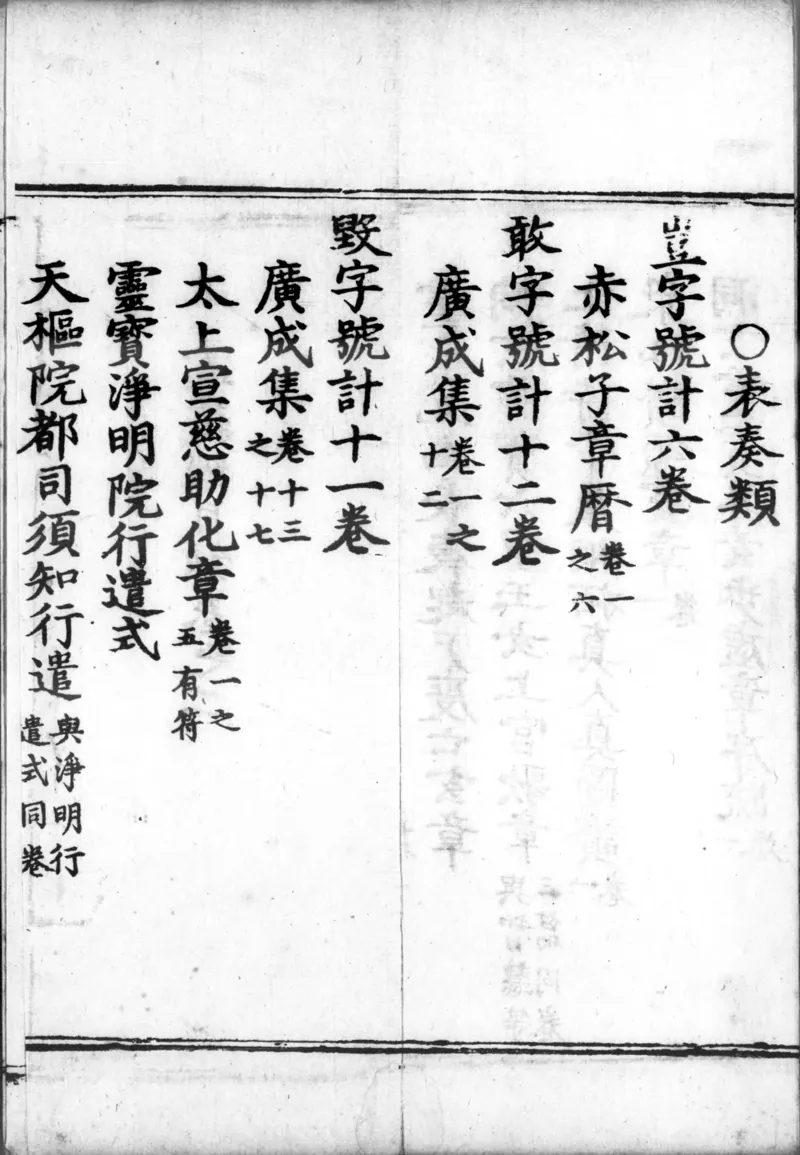 ○表奏類
豈字號計六卷
赤松子章曆卷一之六
敢字號計十二卷
廣成集卷一之十二
毀字號計十一卷
廣成集卷十三之十七
太上宣慈助化章卷一之五有符
靈寶淨明院行遣式
天樞院都司須知行遣與淨明行遣式同卷